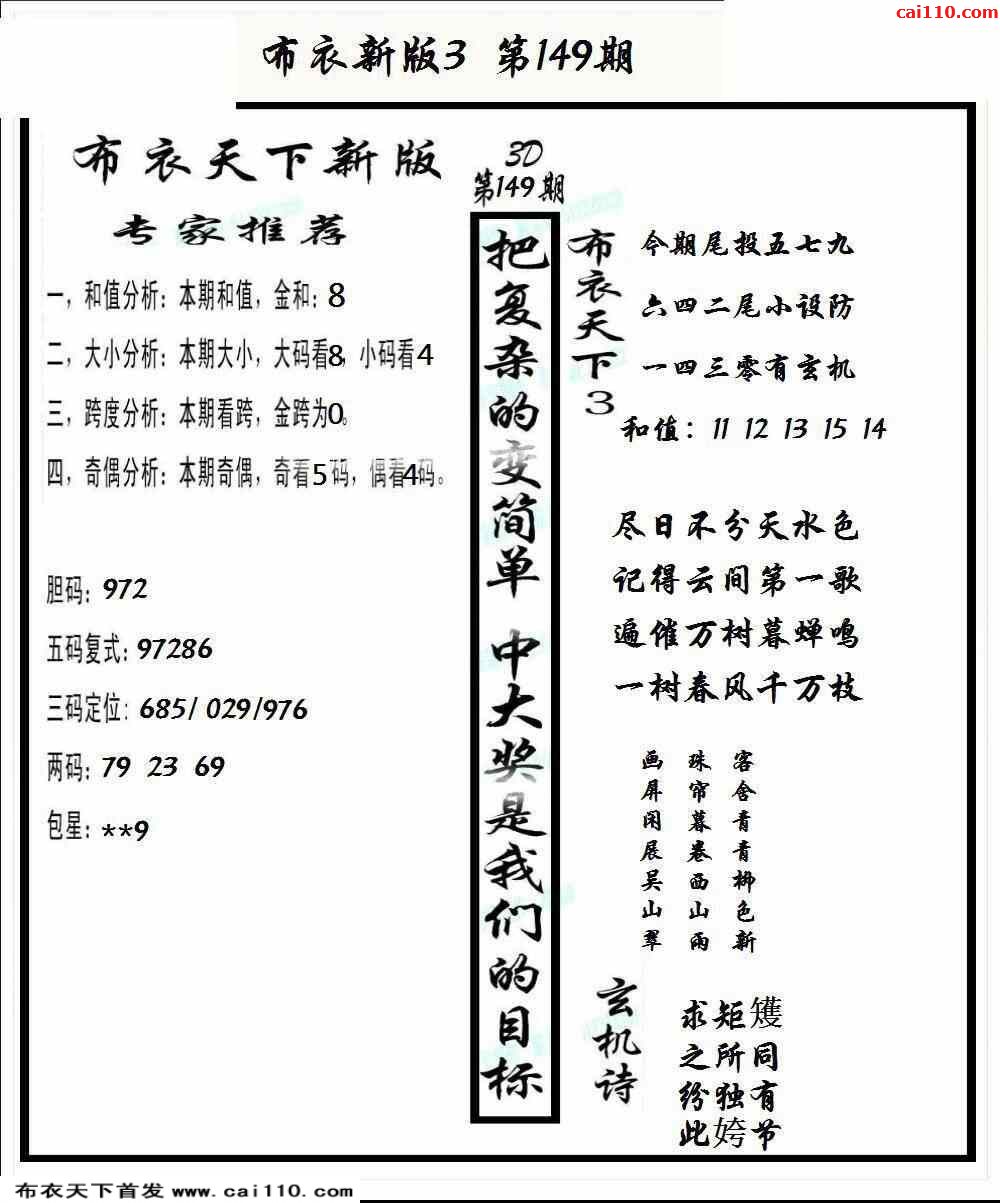 cai110.com
布衣新版3 第149期
布衣天下新版
专家推荐
一，和值分析：本期和值，金和：8
二，大小分析：本期大小，大码看8，小码看4
三，跨度分析：本期看跨，金跨为0。
四，奇偶分析：本期奇偶，奇看5码，偶看4码。
胆码：972
五码复式：97286
三码定位：685/ 029/976
两码：79 23 69
包星：**9
3D
第149期
把复杂的变简单 中大奖是我们的目标
布衣天下3
今期尾投五七九
六四二尾小设防
一四三零有玄机
和值：11 12 13 15 14
尽日不分天水色
记得云间第一歌
遍催万树暮蝉鸣
一树春风千万枝
客舍青青柳色新
珠帘暮卷西山雨
画屏闲展吴山翠
玄机诗
求矩矱
之所同
纷独有
此姱节
布衣天下首发 www.cai110.com